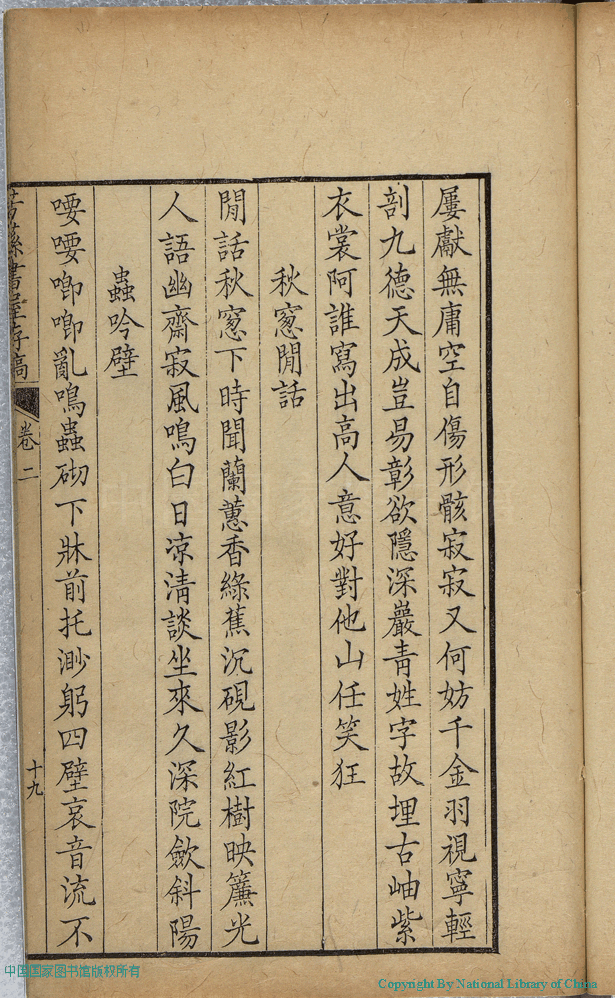 屢獻無庸空自傷形骸寂寂又何妨千金羽視寧輕
剖九德天成豈易彰欲隱深巖靑姓字故埋古岫紫
衣裳阿誰寫出高人意好對他山任笑狂
秋窗閒話
閒話秋窗下時聞蘭蕙香綠蕉沉硯影紅樹映簾光
人語幽齋寂風鳴白日凉淸談坐來久深院斂斜陽
蟲吟壁
喓喓喞喞亂鳴蟲砌下牀前托渺躬四壁哀音流不
書屋存稿
卷二
十九
中国国家图书馆版权所有
Copyright By National Library of China